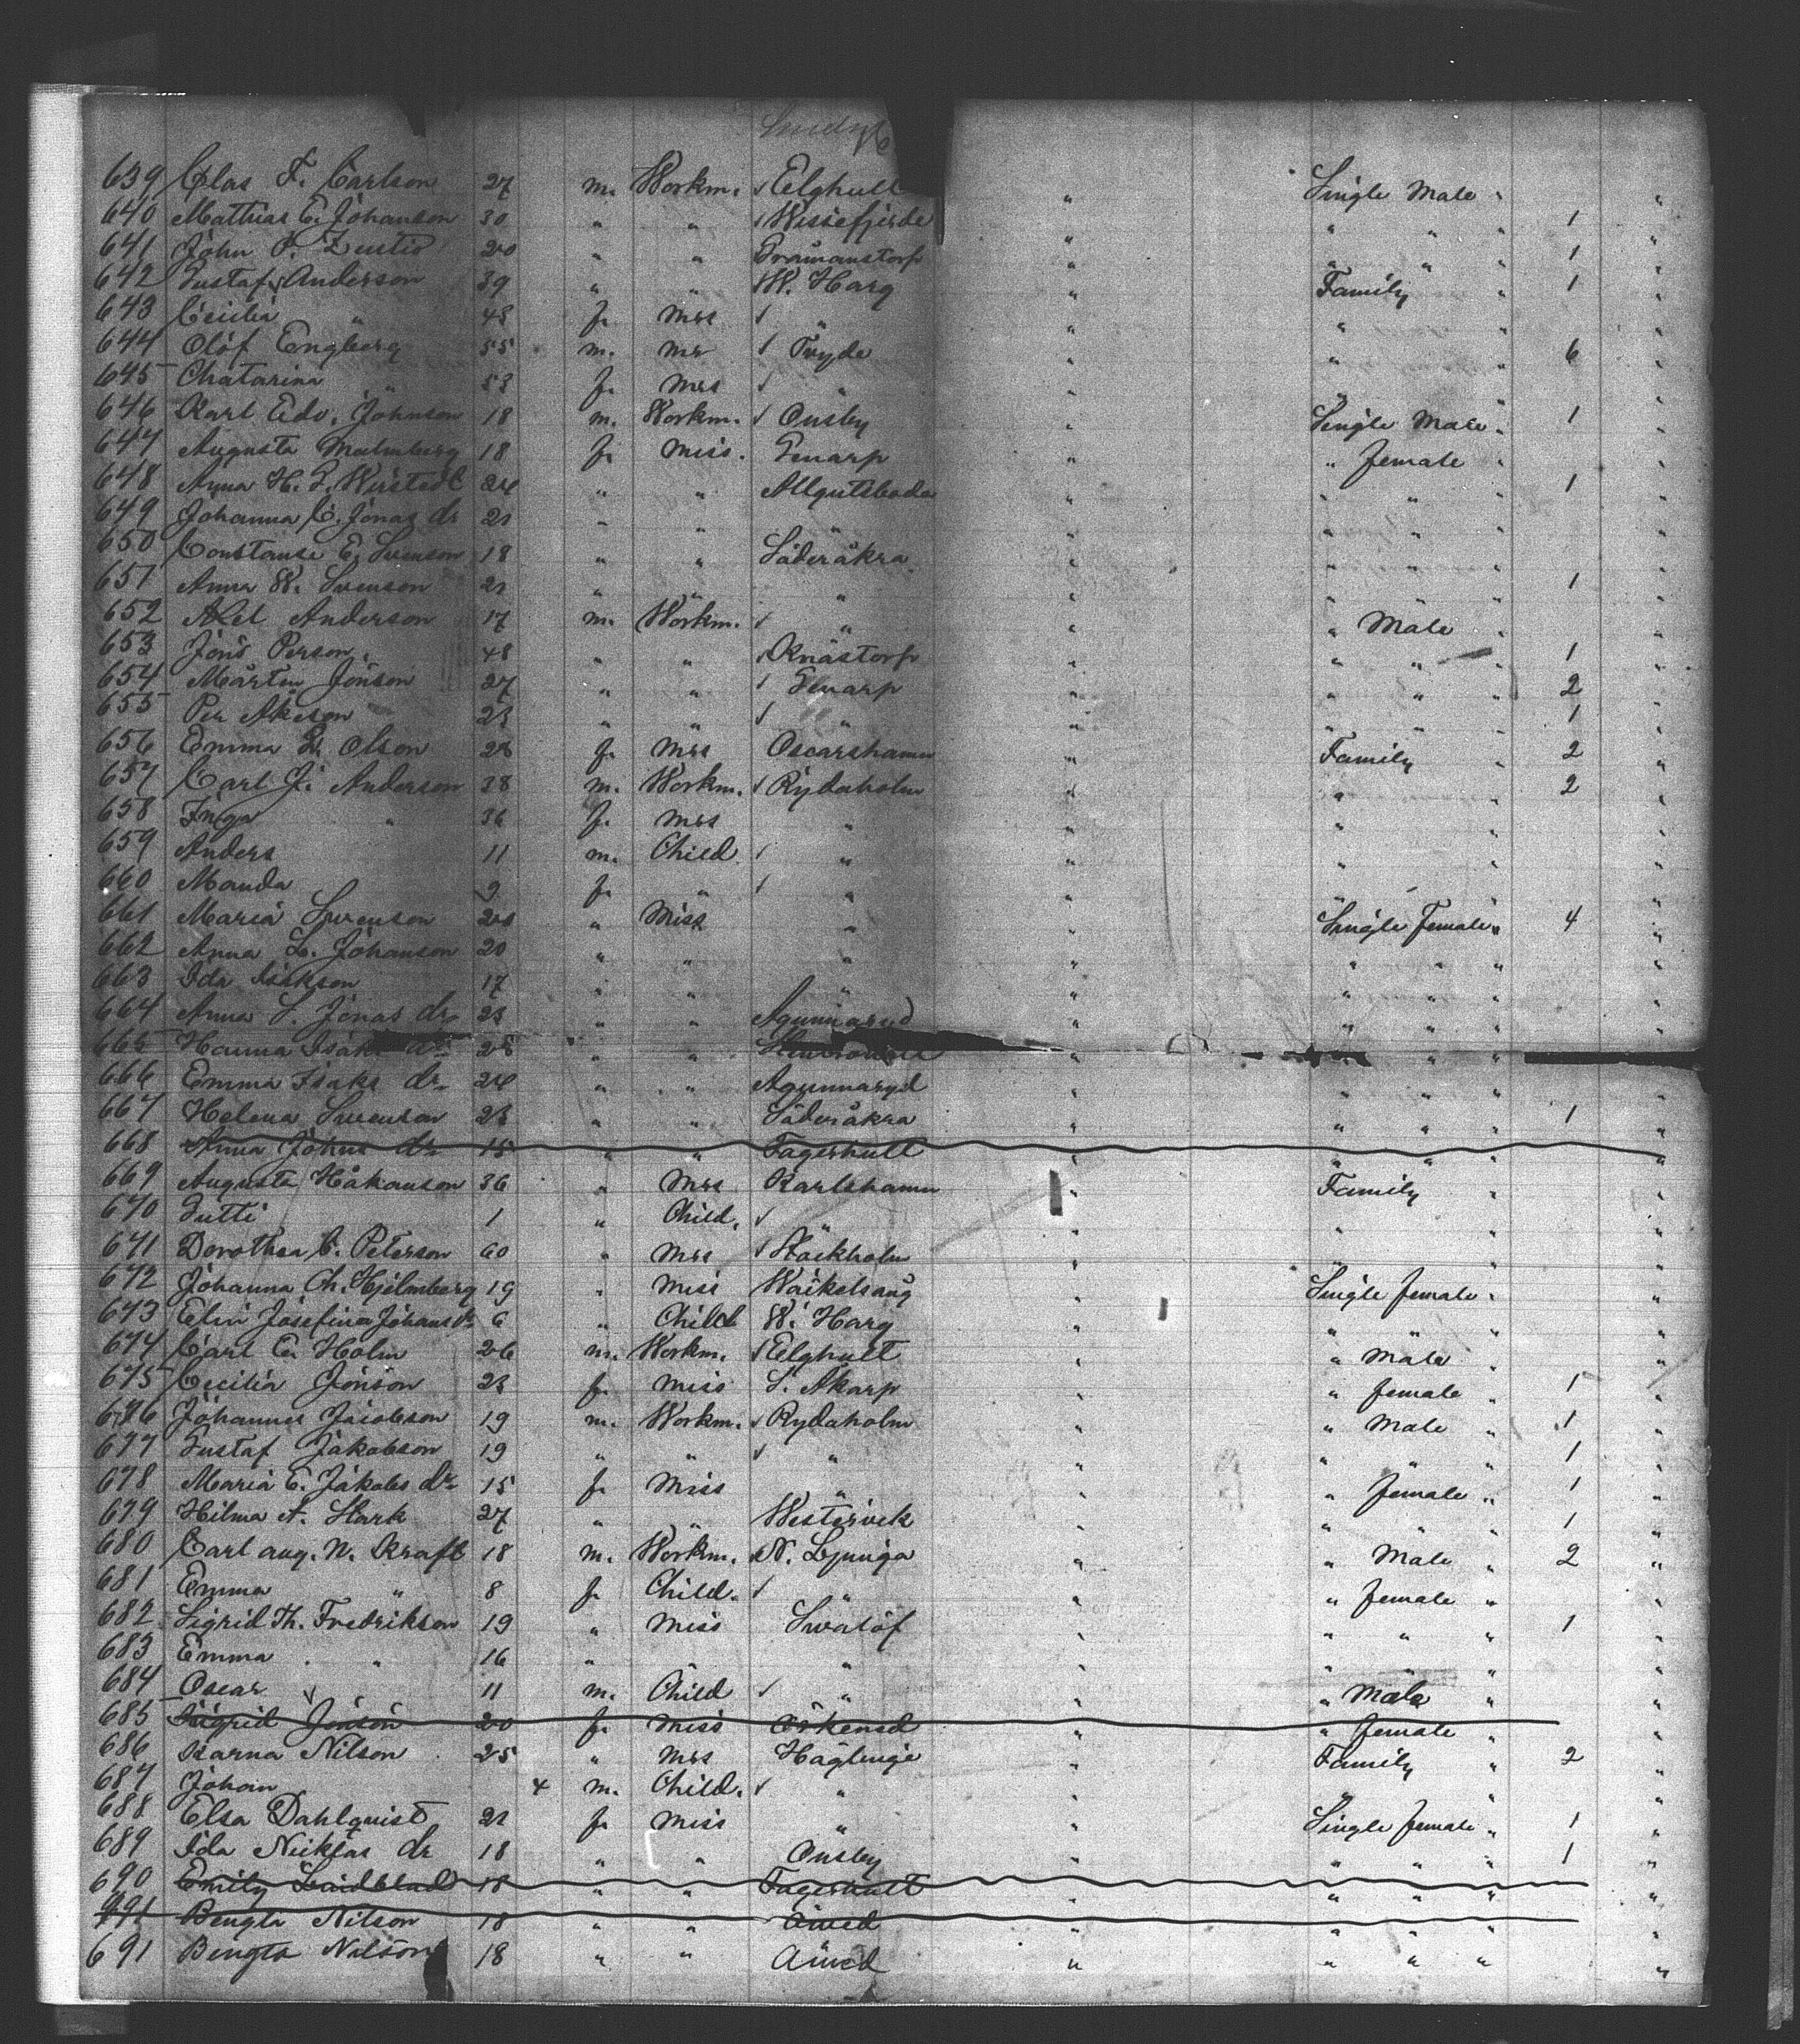 639 Clas F. Carlson 27 m. Workm. Elghult " Single Male " "
640 Mathias E. Johanson 30 " " Wissefjerde " " " " 1 "
641 John P. 20 " " Gråmanstorp " " " " 1 "
642 Gustaf Anderson 39 " " W. Harg " Family " 1 "
643 Cecilia " 43 f. Mrs " " " " "
644 Olof Engberg 55 m. Mr Tryde " " " 6 "
645 Chatarina " 53 f. Mrs " " " " "
646 Karl Edv. Johnson 18 m. Workm. Önsby " Single Male " 1 "
647 Augusta Malmberg 18 f. Miss. Genarp " " female "
648 Anna H. G. 24 " " Allgutsboda " " " " 1 "
649 Johanna C. Jonas dr 21 " " " " " " " "
650 Constanse E. Svenson 18 " " Söderåkra " " " " "
651 Anna W. Svenson 21 " " " " " " " 1 "
652 Axel Anderson 17 m. Workm. " " " Male " "
653 Jöns Person 48 " " Knästorp " " " " 1 "
654 Mårten Jönson 27 " " Genarp " " " " 2 "
655 Per Åkeson 23 " " " " " " " 1 "
656 Emma Olson 28 f. Mrs Oscarshamn " Family " 2 "
657 Carl J. Anderson 38 m. Workm. Rydaholm " " " 2 "
658 Inga " 36 f. Mrs " " " " "
659 Anders 11 m. Child " " " " "
660 Manda 9 f. " " " " " "
661 Maria Svenson 20 " Miss " " Single female " 4 "
662 Anna L. Johanson 20 " " " " " " " "
663 Ida Isakson 17 " " " " " " " "
664 Anna S. Jonas dr 23 " " Agunnaryd " " " " "
665 Hanna Isaks dr 28 " " " " " "
666 Emma Isaks dr 24 " " Agunnaryd " " " " "
667 Helena Svenson 23 " " Söderåkra " " " " 1 "
668 Anna Johns dr 15 " " Fagerhult " " " "
669 Augusta Håkanson 36 " Mrs Karlshamn " Family " "
670 Gutti 1 " Child. " " " " "
671 Dorothea C. Peterson 60 " Mrs Stockholm " " " "
672 Johanna Ch. Hjelmberg 19 " Miss Wäckelsång " Single female " "
673 Elin Josefina Johans dr 6 " Child W. Harg " " " " "
674 Carl E. Holm 26 m. Workm. Elghult " " Male " "
675 Cecilia Jönson 23 f. Miss S. Åkarp " " female " 1 "
676 Johannes Jacobson 19 m. Workm. Rydaholm " " Male " 1 "
677 Gustaf Jakobson 19 " " " " " " " 1 "
678 Maria C. Jakobs dr 15 f. Miss " " " female " 1 "
679 Hilma A. Stark 27 " " Westervik " " " " 1 "
680 Carl Aug. N. Kraft 18 m. Workm. N. Ljunga " " Male " 2 "
681 Emma " 8 f. Child. " " " female " "
682 Sigrid Th. Fredrikson 19 " Miss Svalöf " " " " 1 "
683 Emma " 16 " " " " " " "
684 Oscar 11 m. Child " " " Male " "
685 Sigrid Jönson 20 f. Miss Örkened " female "
686 Karna Nilson 25 " Mrs Häglinge " Family " 2 "
687 Johan 4 m. Child. " " " " "
688 Elsa Dahlquist 21 f. Miss " " Single female " 1 "
689 Ida Nicklas dr 18 " " Önsby " " " " 1 "
690 Emily Lindblad 18 " " Fagerhult " " " " "
691 Bengta Nilson 18 " " " " " " "
691 Bengta Nilson 18 " " " " " " "